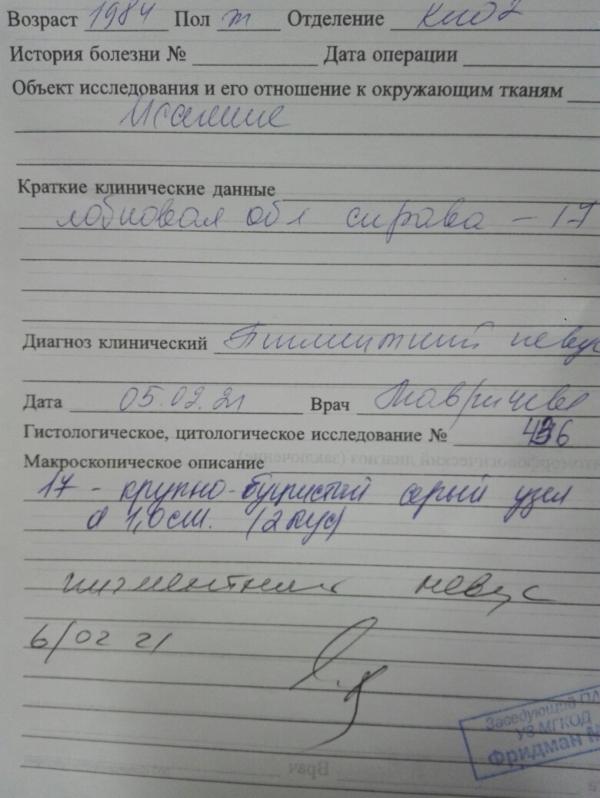 Возраст 1984 Пол т Отделение
История болезни № Дата операции
Объект исследования и его отношение к окружающим тканям
Иссечение
Краткие клинические данные
лобновая обл справа - 1-7
Диагноз клинический Пигментный невус
Дата 05.02.21 Врач
Гистологическое, цитологическое исследование № 436
Макроскопическое описание
17 - крупно-бугристый серый узел
d 1,0 см. (2 кус)
пигментный невус
6/02 21
Заведующий ПА
УЗ МГКОД
Фридман М
Врач